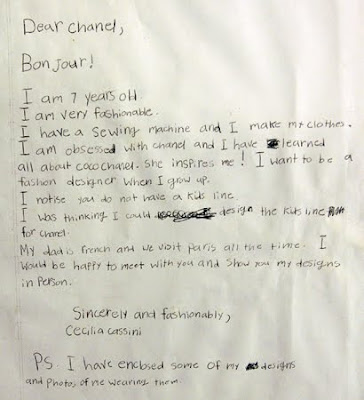 Dear Chanel,
Bonjour!
I am 7 years old.
I am very fashionable.
I have a sewing machine and I make my clothes.
I am obsessed with chanel and I have learned
all about coco chanel. She inspires me! I want to be a
fashion designer when I grow up.
I notise you do not have a kids line.
I was thinking I could design the kids line
for chanel.
My dad is French and we visit paris all the time. I
would be happy to meet with you and show you my designs
in person.
Sincerely and fashionably,
Cecilia Cassini
PS. I have enclosed some of my designs
and photos of me wearing them.